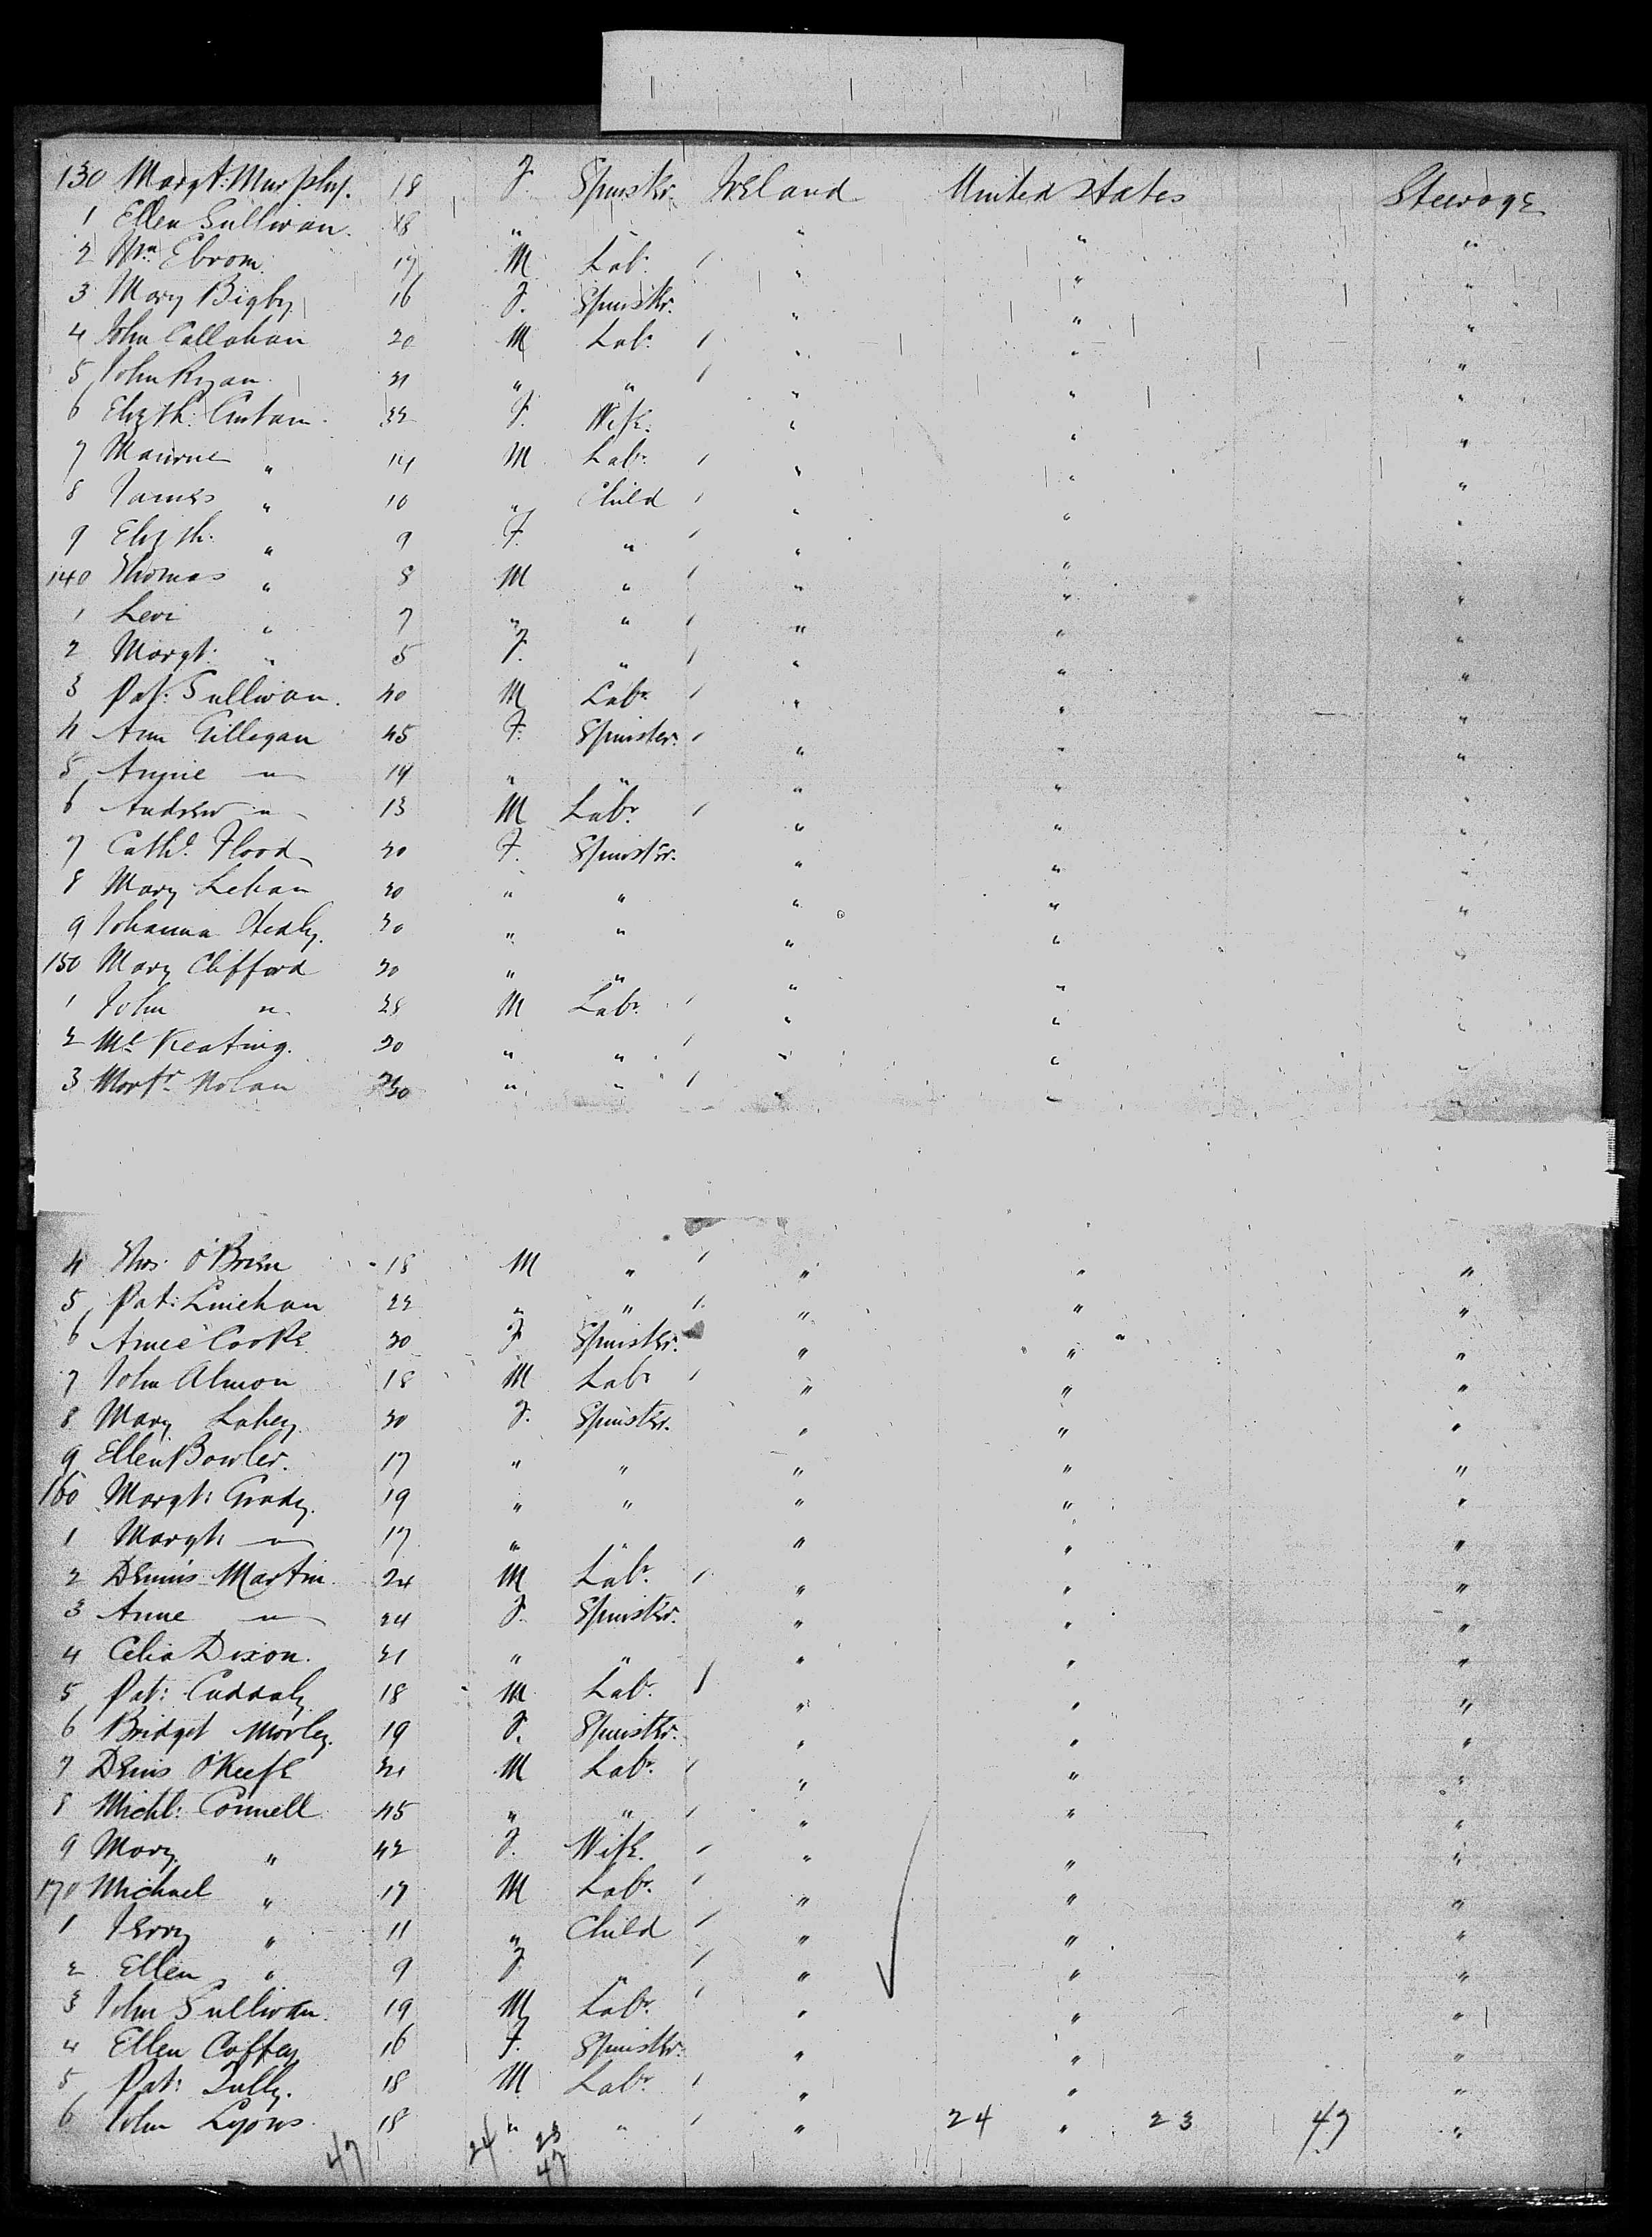 130 Margt: Murphy. 18 F. Spinstr. Ireland United States Steerage
1 Ellen Sullivan. 18 " " " "
2 Wm. 17 M Labr. " " "
3 Mary Bigby 16 F. Spinstr. " " "
4 John Callahan 20 M Labr. " " "
5 John Ryan 21 " " " " "
6 Elizth. 32 F. Wife. " " "
7 " 14 M Labr. " " "
8 James " 10 " Child " " "
9 Elizth. " 9 F. " " " "
140 Thomas " 8 M " " " "
1 Levi " 7 " " " " "
2 Margt: " 5 F. " " " "
3 Pat: Sullivan. 40 M Labr. " " "
4 Ann Gillegan 45 F. Spinster. " " "
5 Annie " 19 " " " " "
6 Andrew " 13 M Labr. " " "
7 Cathe. Flood 20 F. Spinstr. " " "
8 Mary Lehan 20 " " " " "
9 Johanna Healy. 20 " " " " "
150 Mary Clifford 20 " " " " "
1 John " 28 M Labr. " " "
2 Ml Keating. 20 " " " " "
3 Nolan 30 " " " " "
4 Thos. O'Brien 18 M " " " "
5 Pat: Linehan 22 " " " " "
6 Cooke 20 F Spinster. " " "
7 John Almon 18 M Labr " " "
8 Mary Lahey 20 F. Spinster. " " "
9 Ellen Bowler. 17 " " " " "
160 Margt: Grady. 19 " " " " "
1 Margt: " 17 " " " " "
2 Dennis Martin. 24 M Labr. " " "
3 Anne " 24 F. Spinstr. " " "
4 Celia Dixon. 21 " " " " "
5 Pat: Cuddahy 18 M Labr. " " "
6 Bridget Morley. 19 F. Spinstr. " " "
7 Denis O'Keefe 21 M Labr. " " "
8 Michl: Connell 45 " " " " "
9 Mary. " 42 F. Wife. " " "
170 Michael " 17 M Labr. " " "
1 Jerry " 11 " Child " " "
2 Ellen " 9 F. " " " "
3 John Sullivan. 19 M Labr. " " "
4 Ellen Coffey 16 F. Spinstr. " " "
5 Pat: Tully. 18 M Labr. " " "
6 John Lyons. 18 " " " 24 " 23 47 "
47 24 23
47